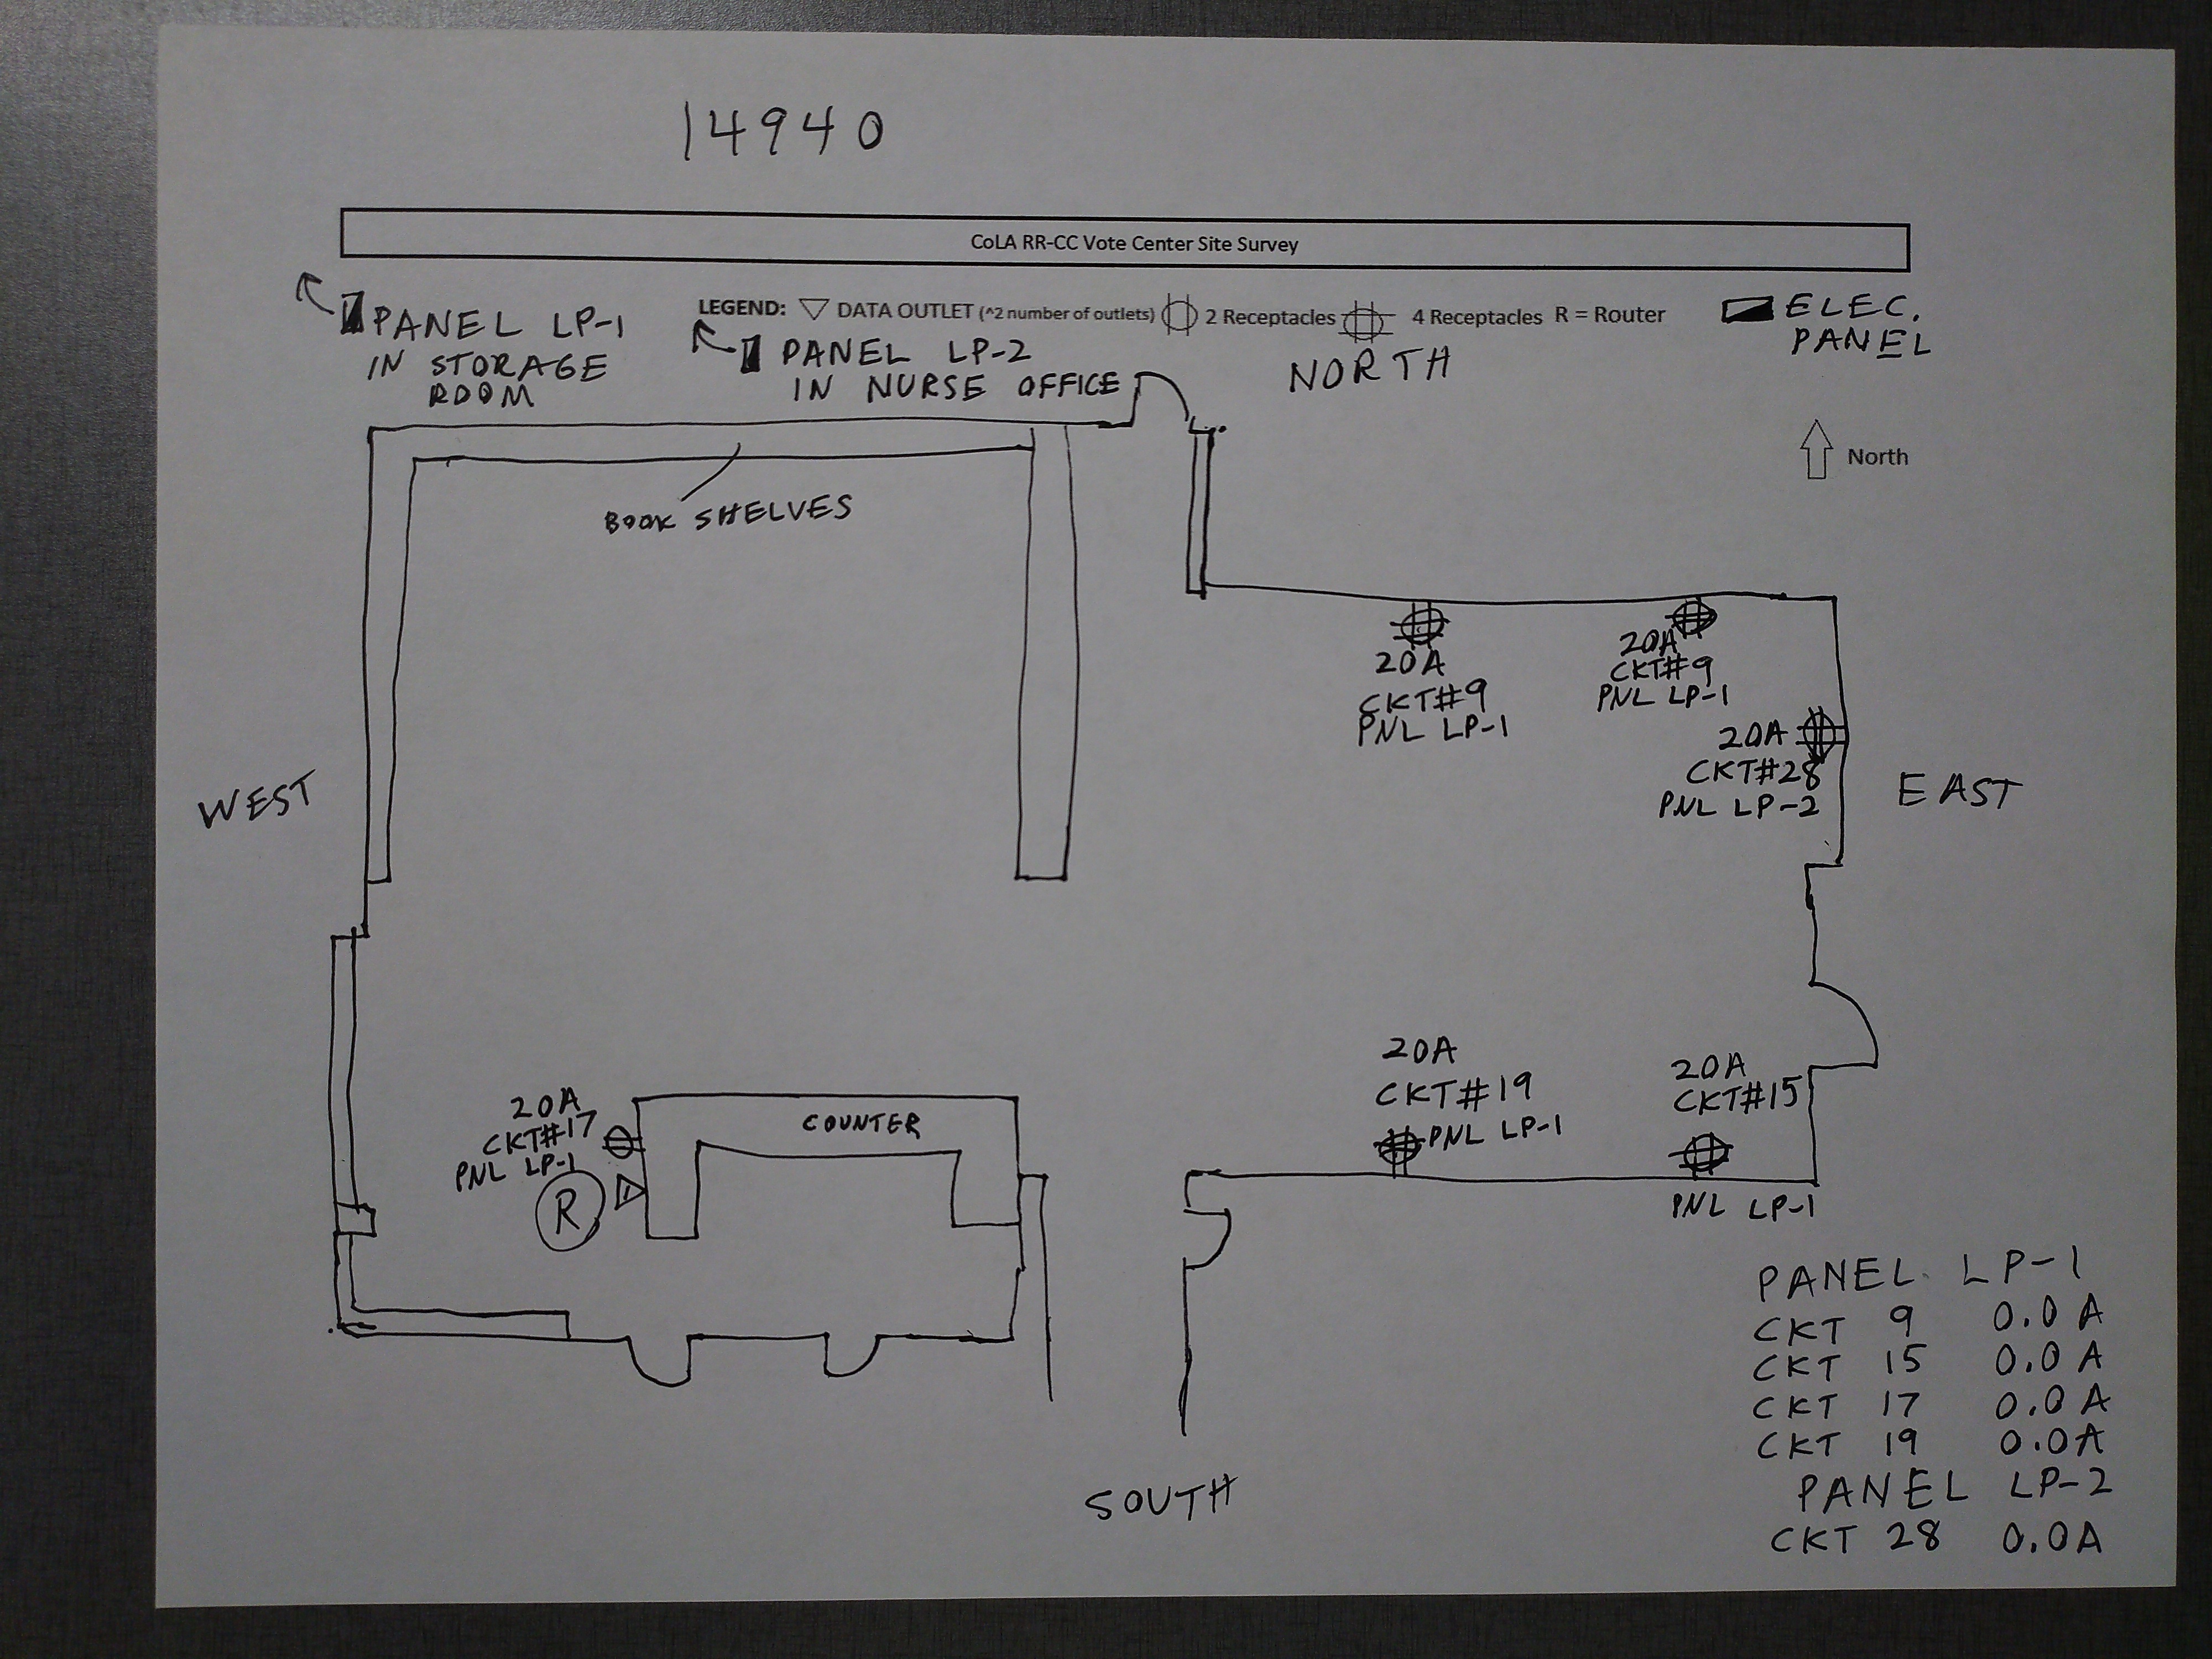 14940
CoLA RR-CC Vote Center Site Survey
PANEL LP-1
IN STORAGE
ROOM
LEGEND: DATA OUTLET (^2 number of outlets) 2 Receptacles 4 Receptacles R = Router
ELEC.
PANEL
PANEL LP-2
IN NURSE OFFICE
NORTH
North
BOOK SHELVES
20A
CKT#9
PNL LP-1
20A
CKT#9
PNL LP-1
20A
CKT#28
PNL LP-2
WEST
EAST
20A
CKT#17
PNL LP-1
R
1
COUNTER
20A
CKT#19
PNL LP-1
20A
CKT#15
PNL LP-1
PANEL LP-1
CKT 9 0.0 A
CKT 15 0.0 A
CKT 17 0.0 A
CKT 19 0.0A
PANEL LP-2
CKT 28 0.0A
SOUTH